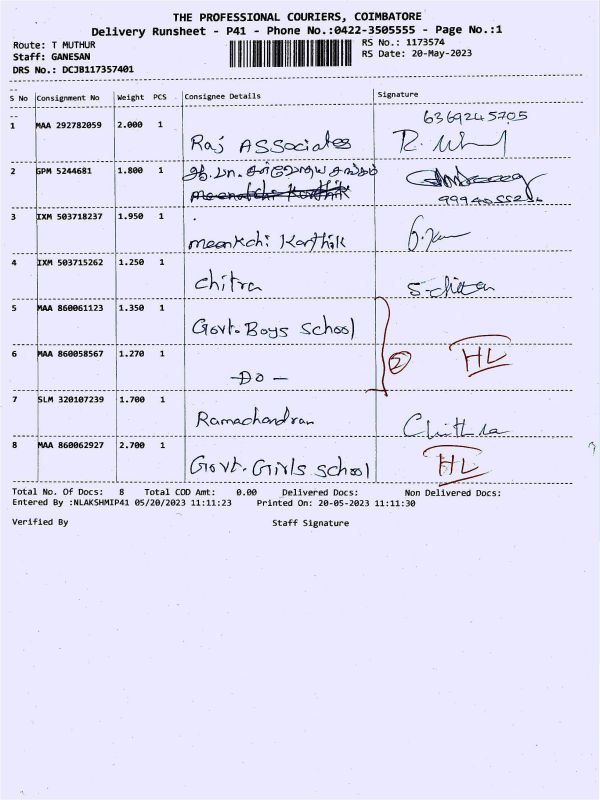 THE PROFESSIONAL COURIERS, COIMBATORE
Delivery Runsheet - P41 - Phone No.:0422-3505555 - Page No.:1
Route: T MUTHUR
RS No.: 1173574
Staff: GANESAN
RS Date: 20-May-2023
DRS No.: DCJB117357401
S No Consignment No Weight PCS Consignee Details Signature
6369245705
1 MAA 292782059 2.000 1
Raj ASSociates
2 GPM 5244681 1.800 1
3 IXM 503718237 1.950 1
meenkchi Karthik
4 IXM 503715262 1.250 1
chitra S.chitra
5 MAA 860061123 1.350 1
Govt. Boys School
6 MAA 860058567 1.270 1
2 HL
-DO-
7 SLM 320107239 1.700 1
Ramachandran Chithra
8 MAA 860062927 2.700 1
Govt. Girls School HL
Total No. Of Docs: 8 Total COD Amt: 0.00 Delivered Docs: Non Delivered Docs:
Entered By :NLAKSHMIP41 05/20/2023 11:11:23 Printed On: 20-05-2023 11:11:30
Verified By Staff Signature